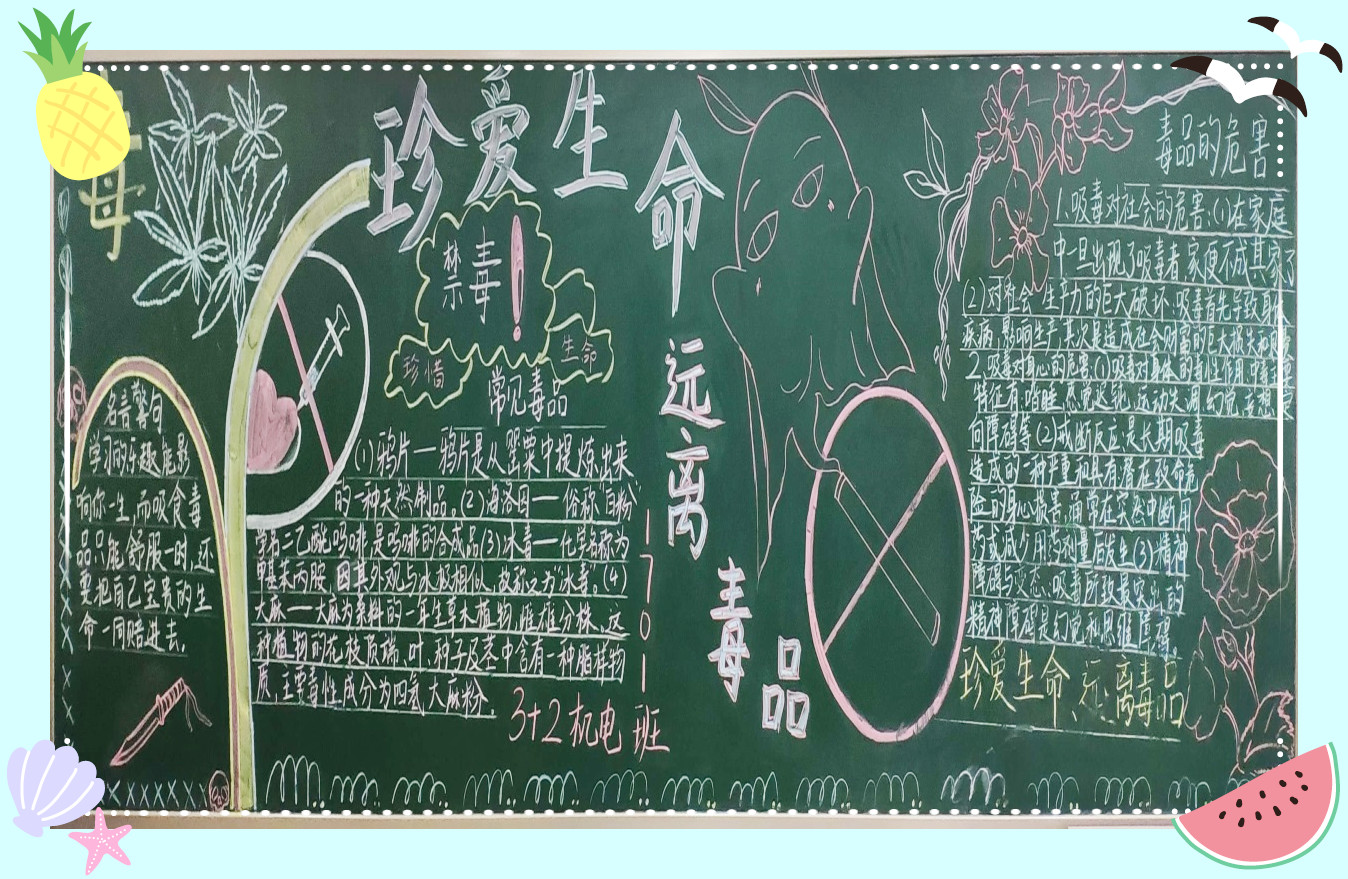 毒
珍爱生命
远离
毒品
禁毒！
珍惜
生命
名言警句
学习的乐趣能影
响你一生,而吸食毒
品只能舒服一时,还
要把自己宝贵的生
命一同赔进去。
常见毒品
(1)鸦片——鸦片是从罂粟中提炼出来
的一种天然制品。(2)海洛因——俗称"白粉"
学名二乙酰吗啡,是吗啡的合成品(3)冰毒——化学名称为
甲基苯丙胺,因其外观与冰极相似,故称之为"冰毒。(4)
大麻——大麻为桑科的一年生草木植物,雌雄分株、这
种植物的花、枝顶端、叶、种子及茎中含有一种脂样物
质,主要毒性成分为四氢大麻粉.
3+2机电 班
1701
毒品的危害
1.吸毒对社会的危害:(1)在家庭
中一旦出现了吸毒者,家便不成其家了
(2)对社会生产力的巨大破坏:吸毒首先导致身体
疾病,影响生产,其次是造成社会财富的巨大损失和
2.吸毒对身心的危害:(1)吸毒对身体的毒性作用:
特征有:嗜睡、感觉迟钝、运动失调、幻觉、妄想、定
向障碍等(2)戒断反应:是长期吸毒
造成的一种严重和具有潜在致命危
险的身心损害,通常在突然中断用
药或减少用药剂量后发生(3)精神
障碍与变态:吸毒所致最突出的
精神障碍是幻觉和思维障碍。
珍爱生命、远离毒品